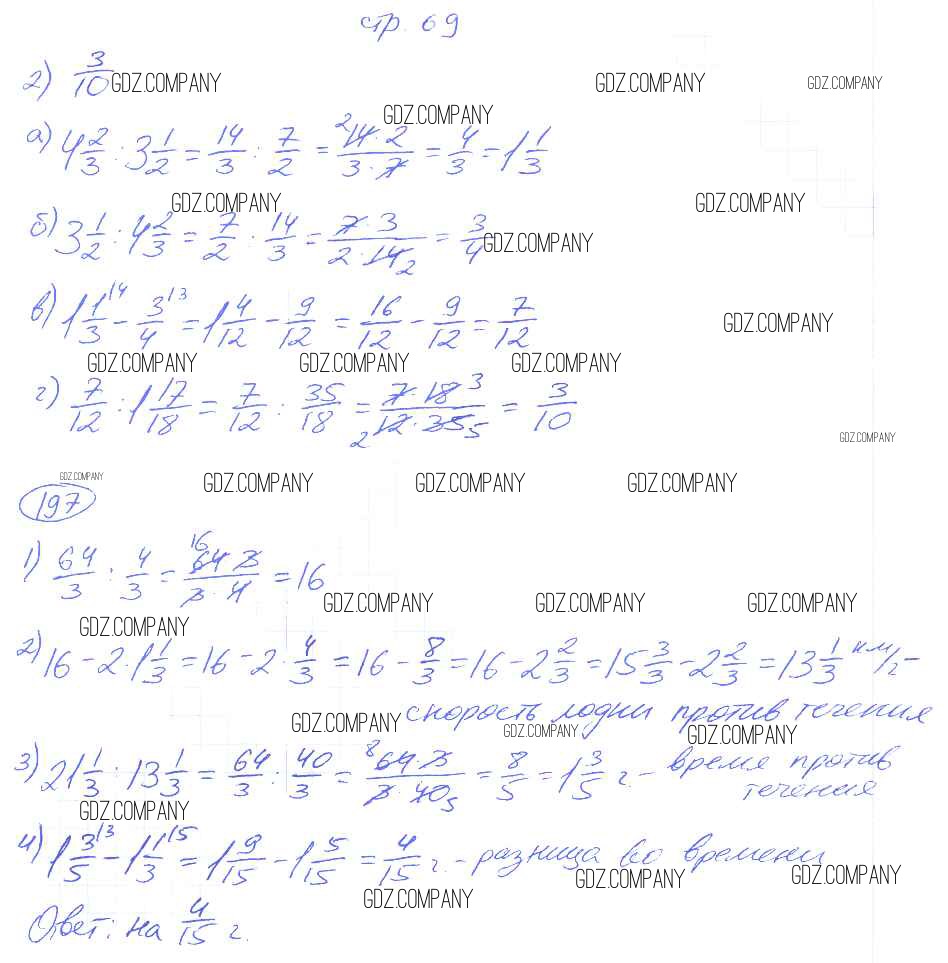 стр. 69
2) 3/10 GDZ.COMPANY GDZ.COMPANY GDZ.COMPANY
GDZ.COMPANY
а) 4 2/3 : 3 1/2 = 14/3 : 7/2 = 2 14·2/3·7 = 4/3 = 1 1/3
GDZ.COMPANY GDZ.COMPANY
б) 3 1/2 : 4 2/3 = 7/2 : 14/3 = 7·3/2·14 2 = 3/4 GDZ.COMPANY
в) 1 1/3 \4 - 3/4 \3 = 1 4/12 - 9/12 = 16/12 - 9/12 = 7/12 GDZ.COMPANY
GDZ.COMPANY GDZ.COMPANY GDZ.COMPANY
г) 7/12 : 1 17/18 = 7/12 : 35/18 = 7·18 3/2 12·35 5 = 3/10
GDZ.COMPANY
GDZ.COMPANY GDZ.COMPANY GDZ.COMPANY GDZ.COMPANY
197
1) 64/3 : 4/3 = 16 64·3/3·4 = 16
GDZ.COMPANY GDZ.COMPANY GDZ.COMPANY
GDZ.COMPANY
2) 16 - 2·1 1/3 = 16 - 2·4/3 = 16 - 8/3 = 16 - 2 2/3 = 15 3/3 - 2 2/3 = 13 1/3 км/г -
GDZ.COMPANY скорость лодки против течения
GDZ.COMPANY GDZ.COMPANY
3) 21 1/3 : 13 1/3 = 64/3 : 40/3 = 8 64·3/3·40 5 = 8/5 = 1 3/5 г. - время против
течения
GDZ.COMPANY
4) 1 3/5 \3 - 1 1/3 \5 = 1 9/15 - 1 5/15 = 4/15 г. - разница во времени
GDZ.COMPANY GDZ.COMPANY
GDZ.COMPANY
Ответ: на 4/15 г.